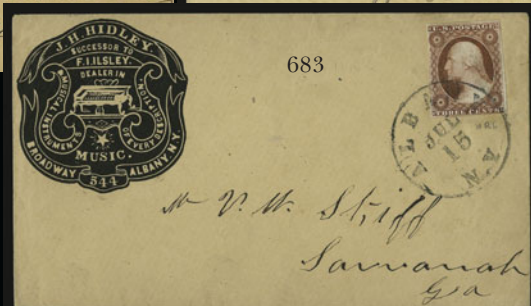 J.H. HIDLEY.
SUCCESSOR TO
F.I. ILSLEY.
DEALER IN
MUSICAL INSTRUMENTS
OF EVERY DESCRIPTION
MUSIC.
BROADWAY ALBANY, N.Y.
544
683
U.S. POSTAGE
THREE CENTS
ALBANY
JUL
15
N.Y.
Mr V. W. Skiff
Savvanah
Ga